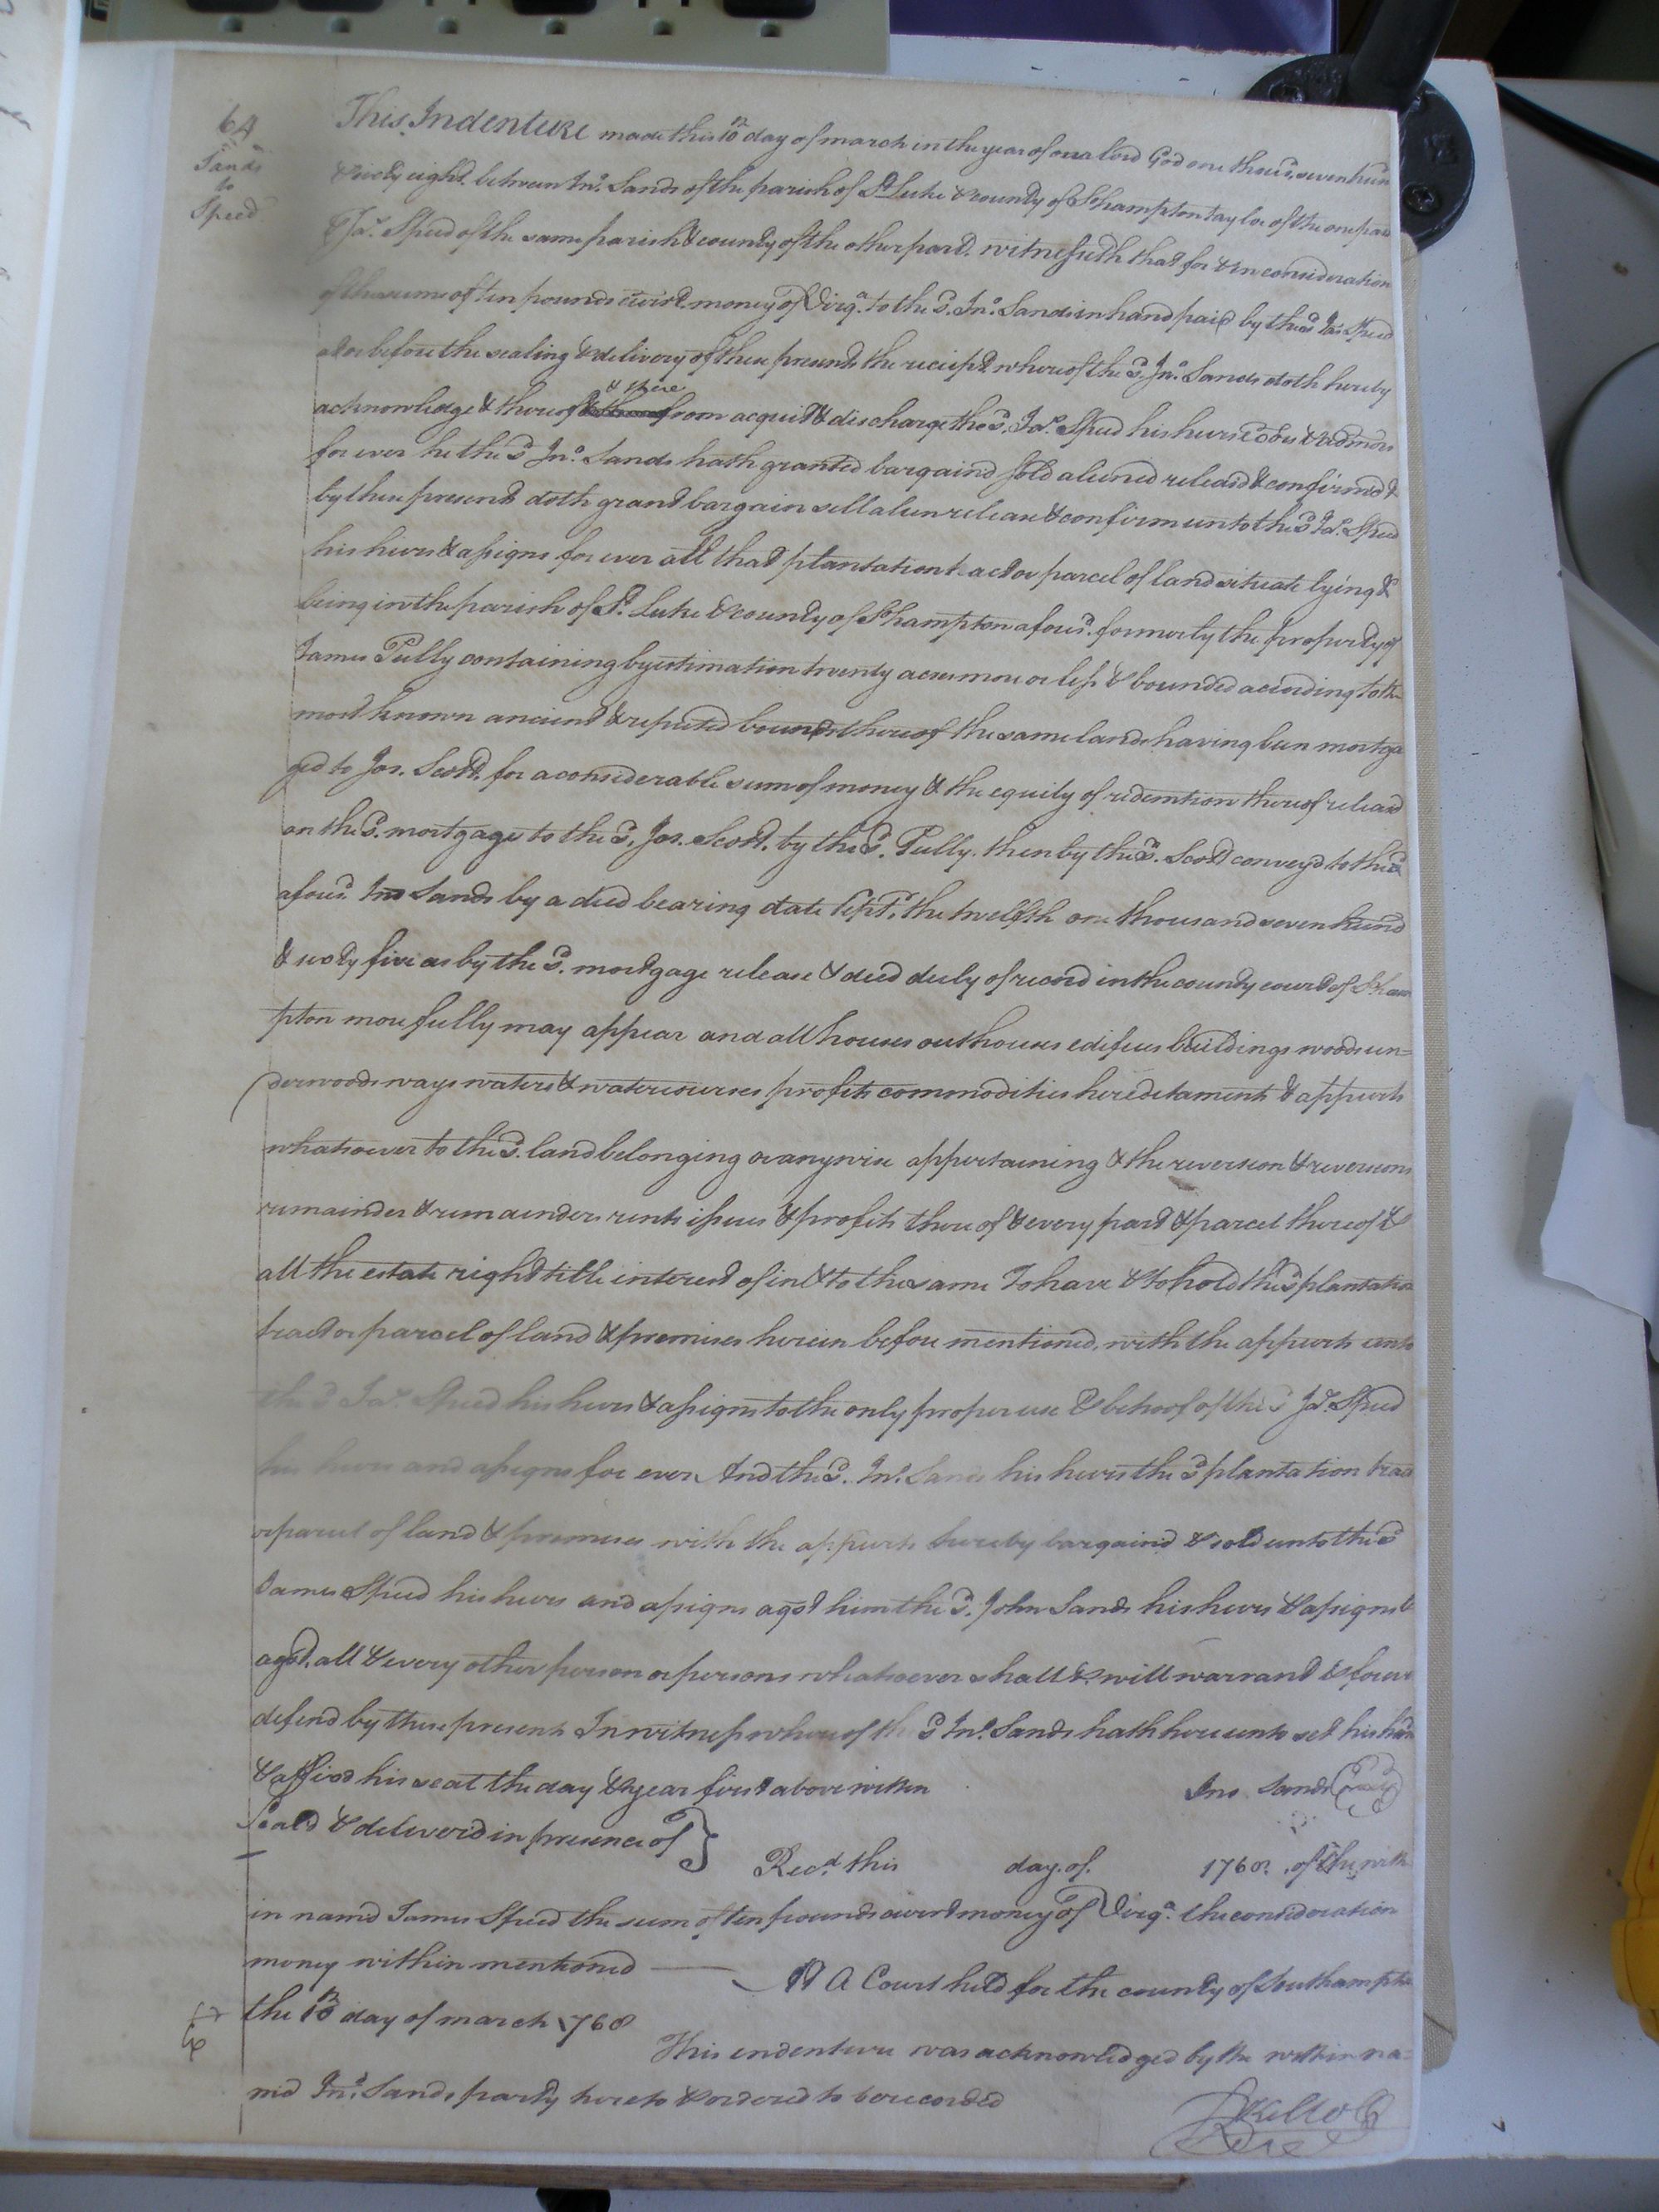 64
Sands
to
Speed
This Indenture made this 10th day of march in the year of our lord God one thous.d seven hun
& sixty eight between Jno. Sands of the parish of St. Luke & county of So.hampton taylor of the one part
& Jas. Speed of the same parish & county of the other part. witnesseth that for & in consideration
of the sume of ten pounds curr.t money of Virga. to the sd. Jno. Sands in hand paid by the sd. Jas. Speed
at or before the sealing & delivery of these presents the reciept whereof the sd. Jno. Sands doth hereby
acknowledge & thereof & there from acquit & discharge the sd. Jas. Speed his heirs exors & admors
for ever he the sd Jno. Sands hath granted bargaind sold aliened releasd & confirmed &
by these presents doth grant bargain sell alien release & confirm unto the sd Jas. Speed
his heirs & assigns for ever all that plantation tract or parcel of land situate lying &
being in the parish of St. Luke & county of So.hampton afores.d formerly the property of
James Pully containing by estimation twenty acres more or less & bounded according to the
most known ancient & reputed bounds thereof the same lands having been mortga
ged to Jos. Scott. for a considerable sum of money & the equity of redemtion thereof releasd
on the sd. mortgage to the sd. Jos. Scott. by the sd. Pully. then by the sd. Scott conveyd to the
afores.d Jno Sands by a deed bearing date Sept. the twelfth one thousand seven hund
& sixty five as by the sd. mortgage release & deed duly of record in the county court of So.ham
pton more fully may appear and all houses outhouses edifices buildings woods un=
derwoods ways waters & watercourses profits commodities hereditaments & appurts
whatsoever to the sd. land belonging or anywise appertaining & the reversion & reversions
remainder & remainders rents issues & profits thereof & every part & parcel thereof &
all the estate right title interest of in & to the same To have & to hold the sd plantation
tract or parcel of land & premises herein before mentioned, with the appurts unto
the sd Jas. Speed his heirs & assigns to the only proper use & behoof of the sd Jas. Speed
his heirs and assigns for ever And the sd. Jno. Sands his heirs the sd plantation tract
or parcel of land & premises with the appurts hereby bargaind & sold unto the sd
James Speed his heirs and assigns agst him the sd. John Sands his heirs & assigns &
agst. all & every other person or persons whatsoever shall & will warrant & forever
defend by these presents In witness whereof the sd Jno. Sands hath hereunto set his hand
& affixd his seal the day & year first above written Jno. Sands (seal)
Seald & deliverd in presence of }
Recd. this day of. 1768. of the with
in named James Speed the sum of ten pounds currt money of Virga. the consideration
money within mentioned — At A Court held for the county of Southampton
the 10th day of march 1768
This indenture was acknowledged by the within na=
med Jno. Sands party hereto & ordered to be recorded